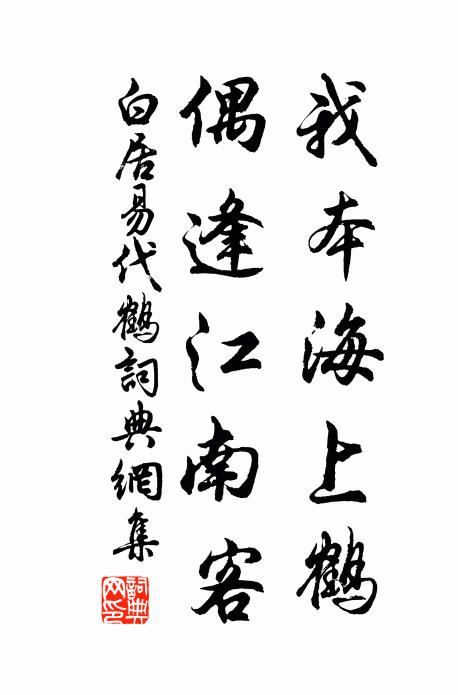 我本海上鶴
偶逢江南客
白居易代鶴詞典網集
詞典網印